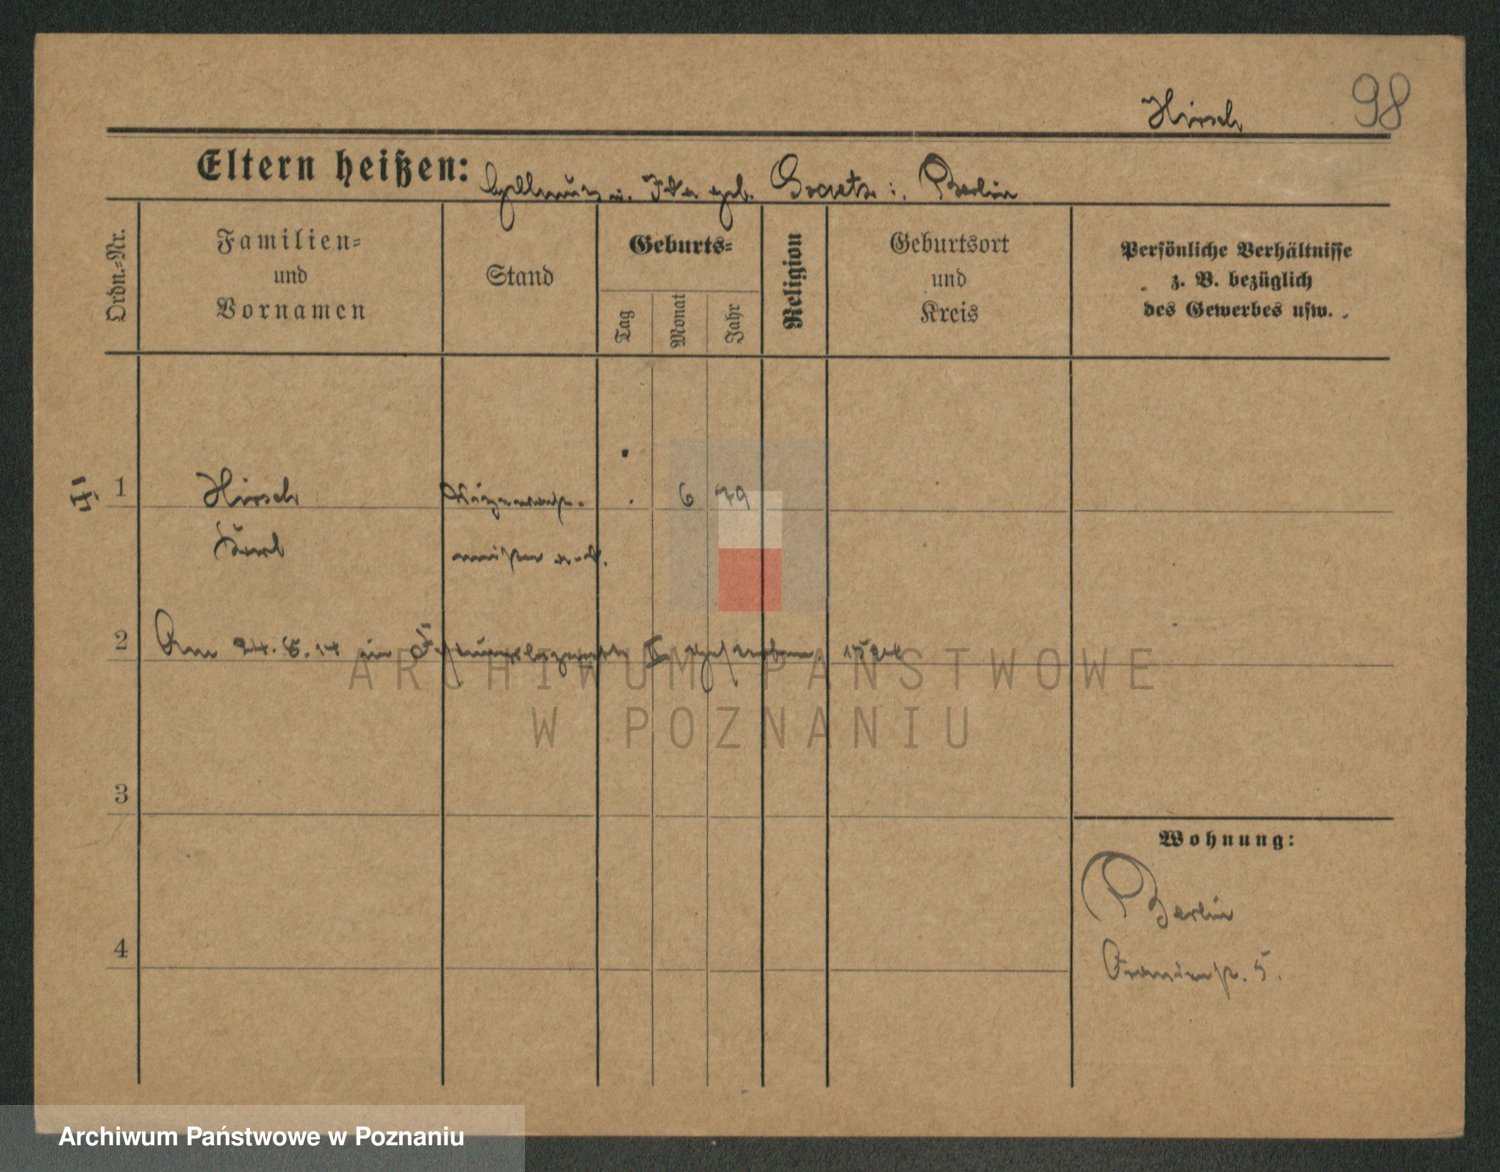 98
Hirsch
Eltern heißen: Hellmuth u. Ida geb. i. Berlin
Ordn.-Nr.
Familien-
und
Vornamen
Stand
Geburts-
Tag
Monat
Jahr
Religion
Geburtsort
und
Kreis
Persönliche Verhältnisse
z. B. bezüglich
des Gewerbes usw.
1
Hirsch
6 79
Karl
2
Am 24. 8. 14 in Festungslazarett II gestorben.
3
4
Wohnung:
Berlin
5.
ARCHIWUM PAŃSTWOWE
W POZNANIU
Archiwum Państwowe w Poznaniu